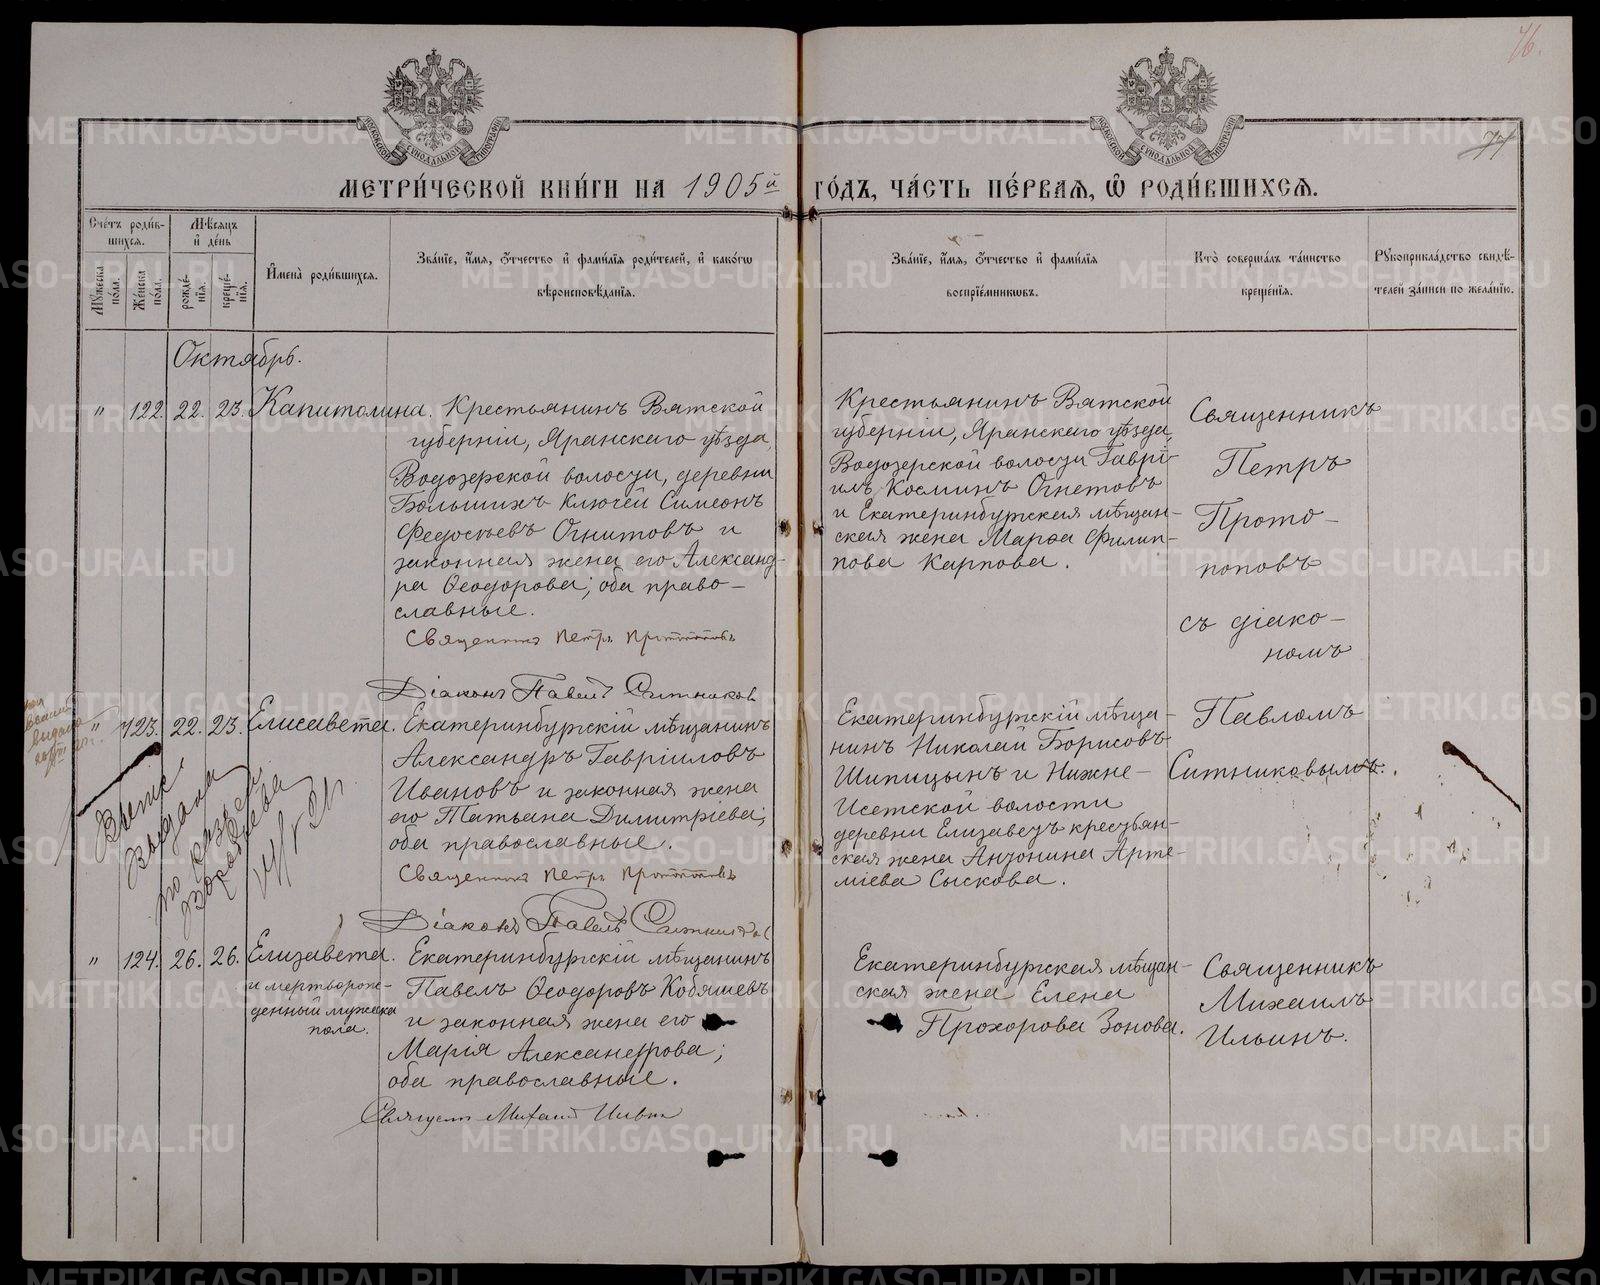 76.
77
МОСКОВСКОЙ СИНОДАЛЬНОЙ ТИПОГРАФІИ
МОСКОВСКОЙ СИНОДАЛЬНОЙ ТИПОГРАФІИ
МЕТРИ́ЧЕСКОЙ КНИ́ГИ НА 1905й ГО́ДЪ, ЧА́СТЬ ПЕ́РВАЯ, Ѡ РОДИ́ВШИХСЯ.
Сче́тъ роди́в-
шихся.
Мѣ́сяцъ
и҆ де́нь
Мꙋ́жеска
по́ла.
Же́нска
по́ла.
рожде́-
нїя.
креще́-
нїя.
И҆мена̀ роди́вшихся.
Зва́нїе, и҆́мя, ѻ҆́тчество и҆ фами́лїя роди́телей, и҆ како́гѡ
вѣроисповѣ́данїя.
Зва́нїе, и҆́мя, ѻ҆́тчество и҆ фами́лїя
воспрїе́мникѡвъ.
Кто̀ соверша́лъ та́инство
креще́нїя.
Рꙋкоприкла́дство свидѣ́-
телей за́писи по жела́нїю.
Октябрь.
" 122. 22. 23. Капитолина.
Крестьянинъ Вятской
губерніи, Яранскаго уѣзда,
Водозерской волости, деревни
Большихъ Ключей Симеонъ
Федосѣевъ Огнитовъ и
законная жена его Александ-
ра Ѳеодорова; оба право-
славные.
Священникъ Петръ Протопоповъ
Діаконъ Павелъ Ситниковъ
Крестьянинъ Вятской
губерніи, Яранскаго уѣзда,
Водозерской волости Гаврі-
илъ Косминъ Огнетовъ
и Екатеринбургская мѣщан-
ская жена Марѳа Филип-
пова Карпова.
Священникъ
Петръ
Прото-
поповъ
съ діако-
номъ
Павломъ
Ситниковымъ.
" 123. 22. 23. Елисавета.
Екатеринбургскій мѣщанинъ
Александръ Гавріиловъ
Ивановъ и законная жена
его Татьяна Димитріева;
оба православные.
Священникъ Петръ Протопоповъ
Діаконъ Павелъ Ситниковъ
Екатеринбургскій мѣща-
нинъ Николай Борисовъ
Шипицынъ и Нижне-
Исетской волости
деревни Елизаветъ крестьян-
ская жена Антонина Арте-
міева Сыскова.
выдана
Выпис
Выдана
по
" 124. 26. 26. Елизавета.
и мертворож-
денный мужска
пола.
Екатеринбургскій мѣщанинъ
Павелъ Ѳеодоровъ Кобяшевъ
и законная жена его
Марія Александрова;
оба православные.
Священ. Михаил Ильин
Екатеринбургская мѣщан-
ская жена Елена
Прохорова Зонова.
Священникъ
Михаилъ
Ильинъ.
METRIKI.GASO-URAL.RU